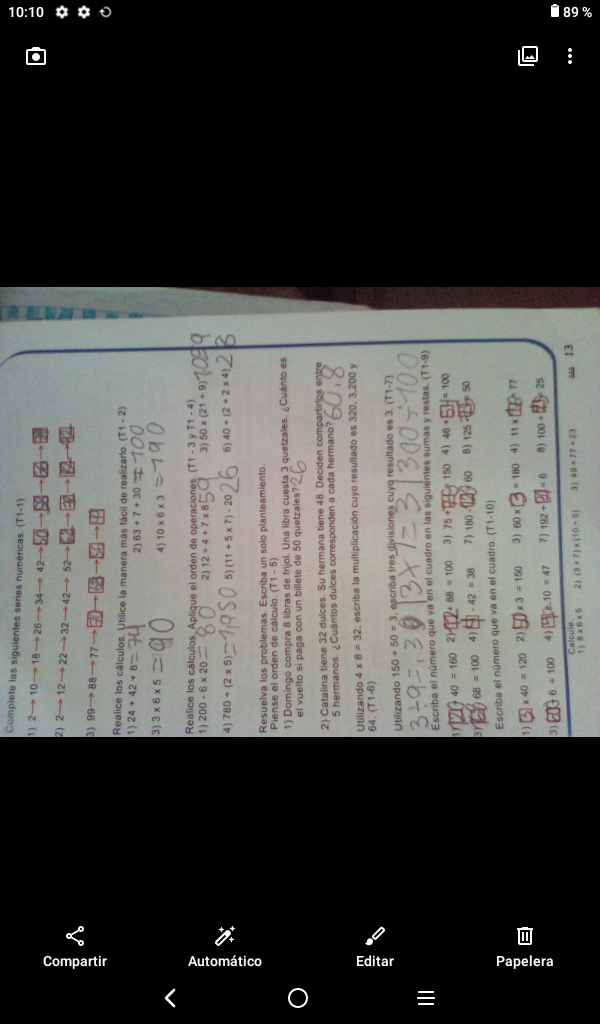 10:10
89 %
Complete las siguientes series numéricas. (T1-1)
1) 2 → 10 → 18 → 26 → 34 → 42 → 50 → 58 → 66 →
2) 2 → 12 → 22 → 32 → 42 → 52 → 62 →
3) 99 → 88 → 77 →
Realice los cálculos. Utilice la manera más fácil de realizarlo. (T1 - 2)
1) 24 + 42 + 8 = 74 2) 63 + 7 + 30 = 100
3) 3 x 6 x 5 = 90 4) 10 x 6 x 3 = 190
Realice los cálculos. Aplique el orden de operaciones. (T1 - 3 y T1 - 4)
1) 200 - 6 x 20 = 80 2) 12 + 4 + 7 x 8 59 3) 50 x (21 + 9)
4) 780 ÷ (2 x 5) = 1950 5) (11 + 5 x 7) - 20 26 6) 40 + (2 + 2 x 4) 23
Resuelva los problemas. Escriba un solo planteamiento.
Piense el orden de cálculo. (T1 - 5)
1) Domingo compra 8 libras de frijol. Una libra cuesta 3 quetzales. ¿Cuánto es
el vuelto si paga con un billete de 50 quetzales? 26
2) Catalina tiene 32 dulces. Su hermana tiene 48. Deciden compartirlos entre
5 hermanos. ¿Cuántos dulces corresponden a cada hermano? 60,8
Utilizando 4 x 8 = 32, escriba la multiplicación cuyo resultado es 320, 3,200 y
64. (T1-6)
Utilizando 150 ÷ 50 = 3, escriba tres divisiones cuyo resultado es 3. (T1-7)
3 ÷ 9 = 3 3 x 1 = 3 300 ÷ 100
Escriba el número que va en el cuadro en las siguientes sumas y restas. (T1-9)
1) 40 = 160 2) + 88 = 100 3) 75 + 150 4) 46 + = 100
3) 68 = 100 4) - 42 = 38 7) 180 - 60 8) 125 - = 50
Escriba el número que va en el cuadro. (T1-10)
1) x 40 = 120 2) 50 x 3 = 150 3) 60 x 3 = 180 4) 11 x = 77
3) 6 = 100 4) 10 = 47 7) 192 ÷ = 6 8) 100 ÷ = 25
Calcule
1) 8 x 6 x 5 2) (3 + 7) x (10 ÷ 5) 3) 49 + 77 + 23
13
Compartir
Automático
Editar
Papelera